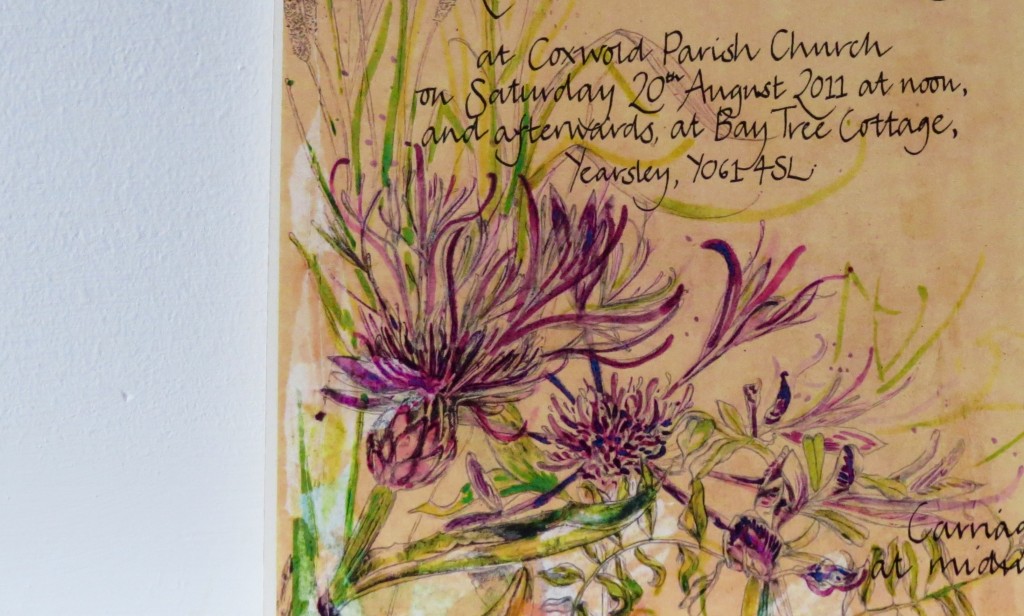 at Coxwold Parish Church
on Saturday 20th August 2011 at noon,
and afterwards, at Bay Tree Cottage,
Yearsley, YO61 4SL.
at